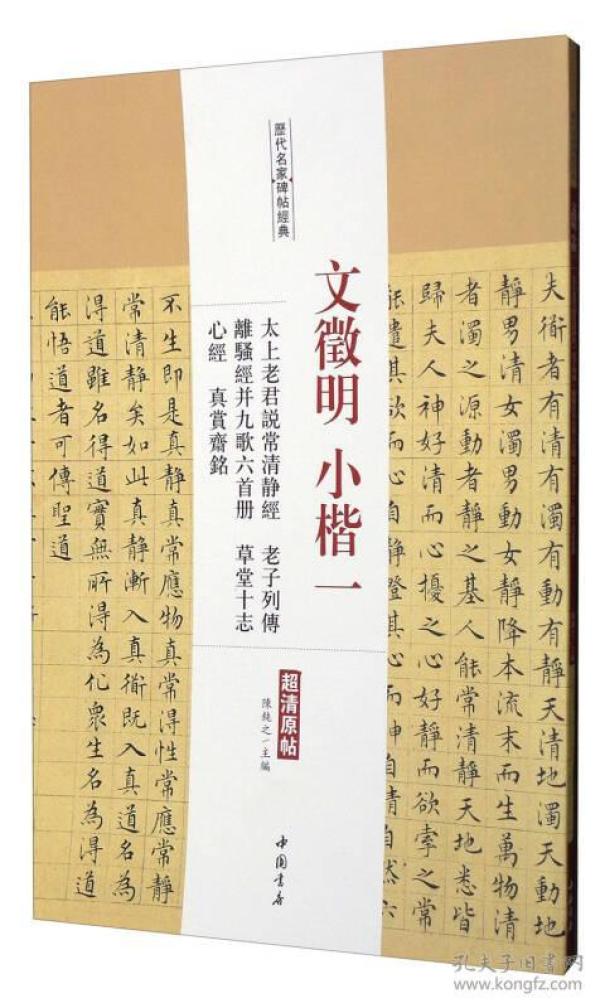 歷代名家碑帖經典
文徵明 小楷一
太上老君説常清静經 老子列傳
離騷經并九歌六首册 草堂十志
心經 真賞齋銘
超清原帖
陳鈍之/主編
中国書店
夫衜者有清有濁有動有静天清地濁天動地
静男清女濁男動女静降本流末而生萬物清
者濁之源動者静之基人能常清静天地悉皆
歸夫人神好清而心擾之心好静而欲牽之常
能遣其欲而心自静澄其心而神自清自然六
不生即是真静真常應物真常得性常應常静
常清静矣如此真静漸入真衜既入真道名為
得道雖名得道實無所得為化衆生名為得道
能悟道者可傳聖道
孔夫子旧書网
www.kongfz.com